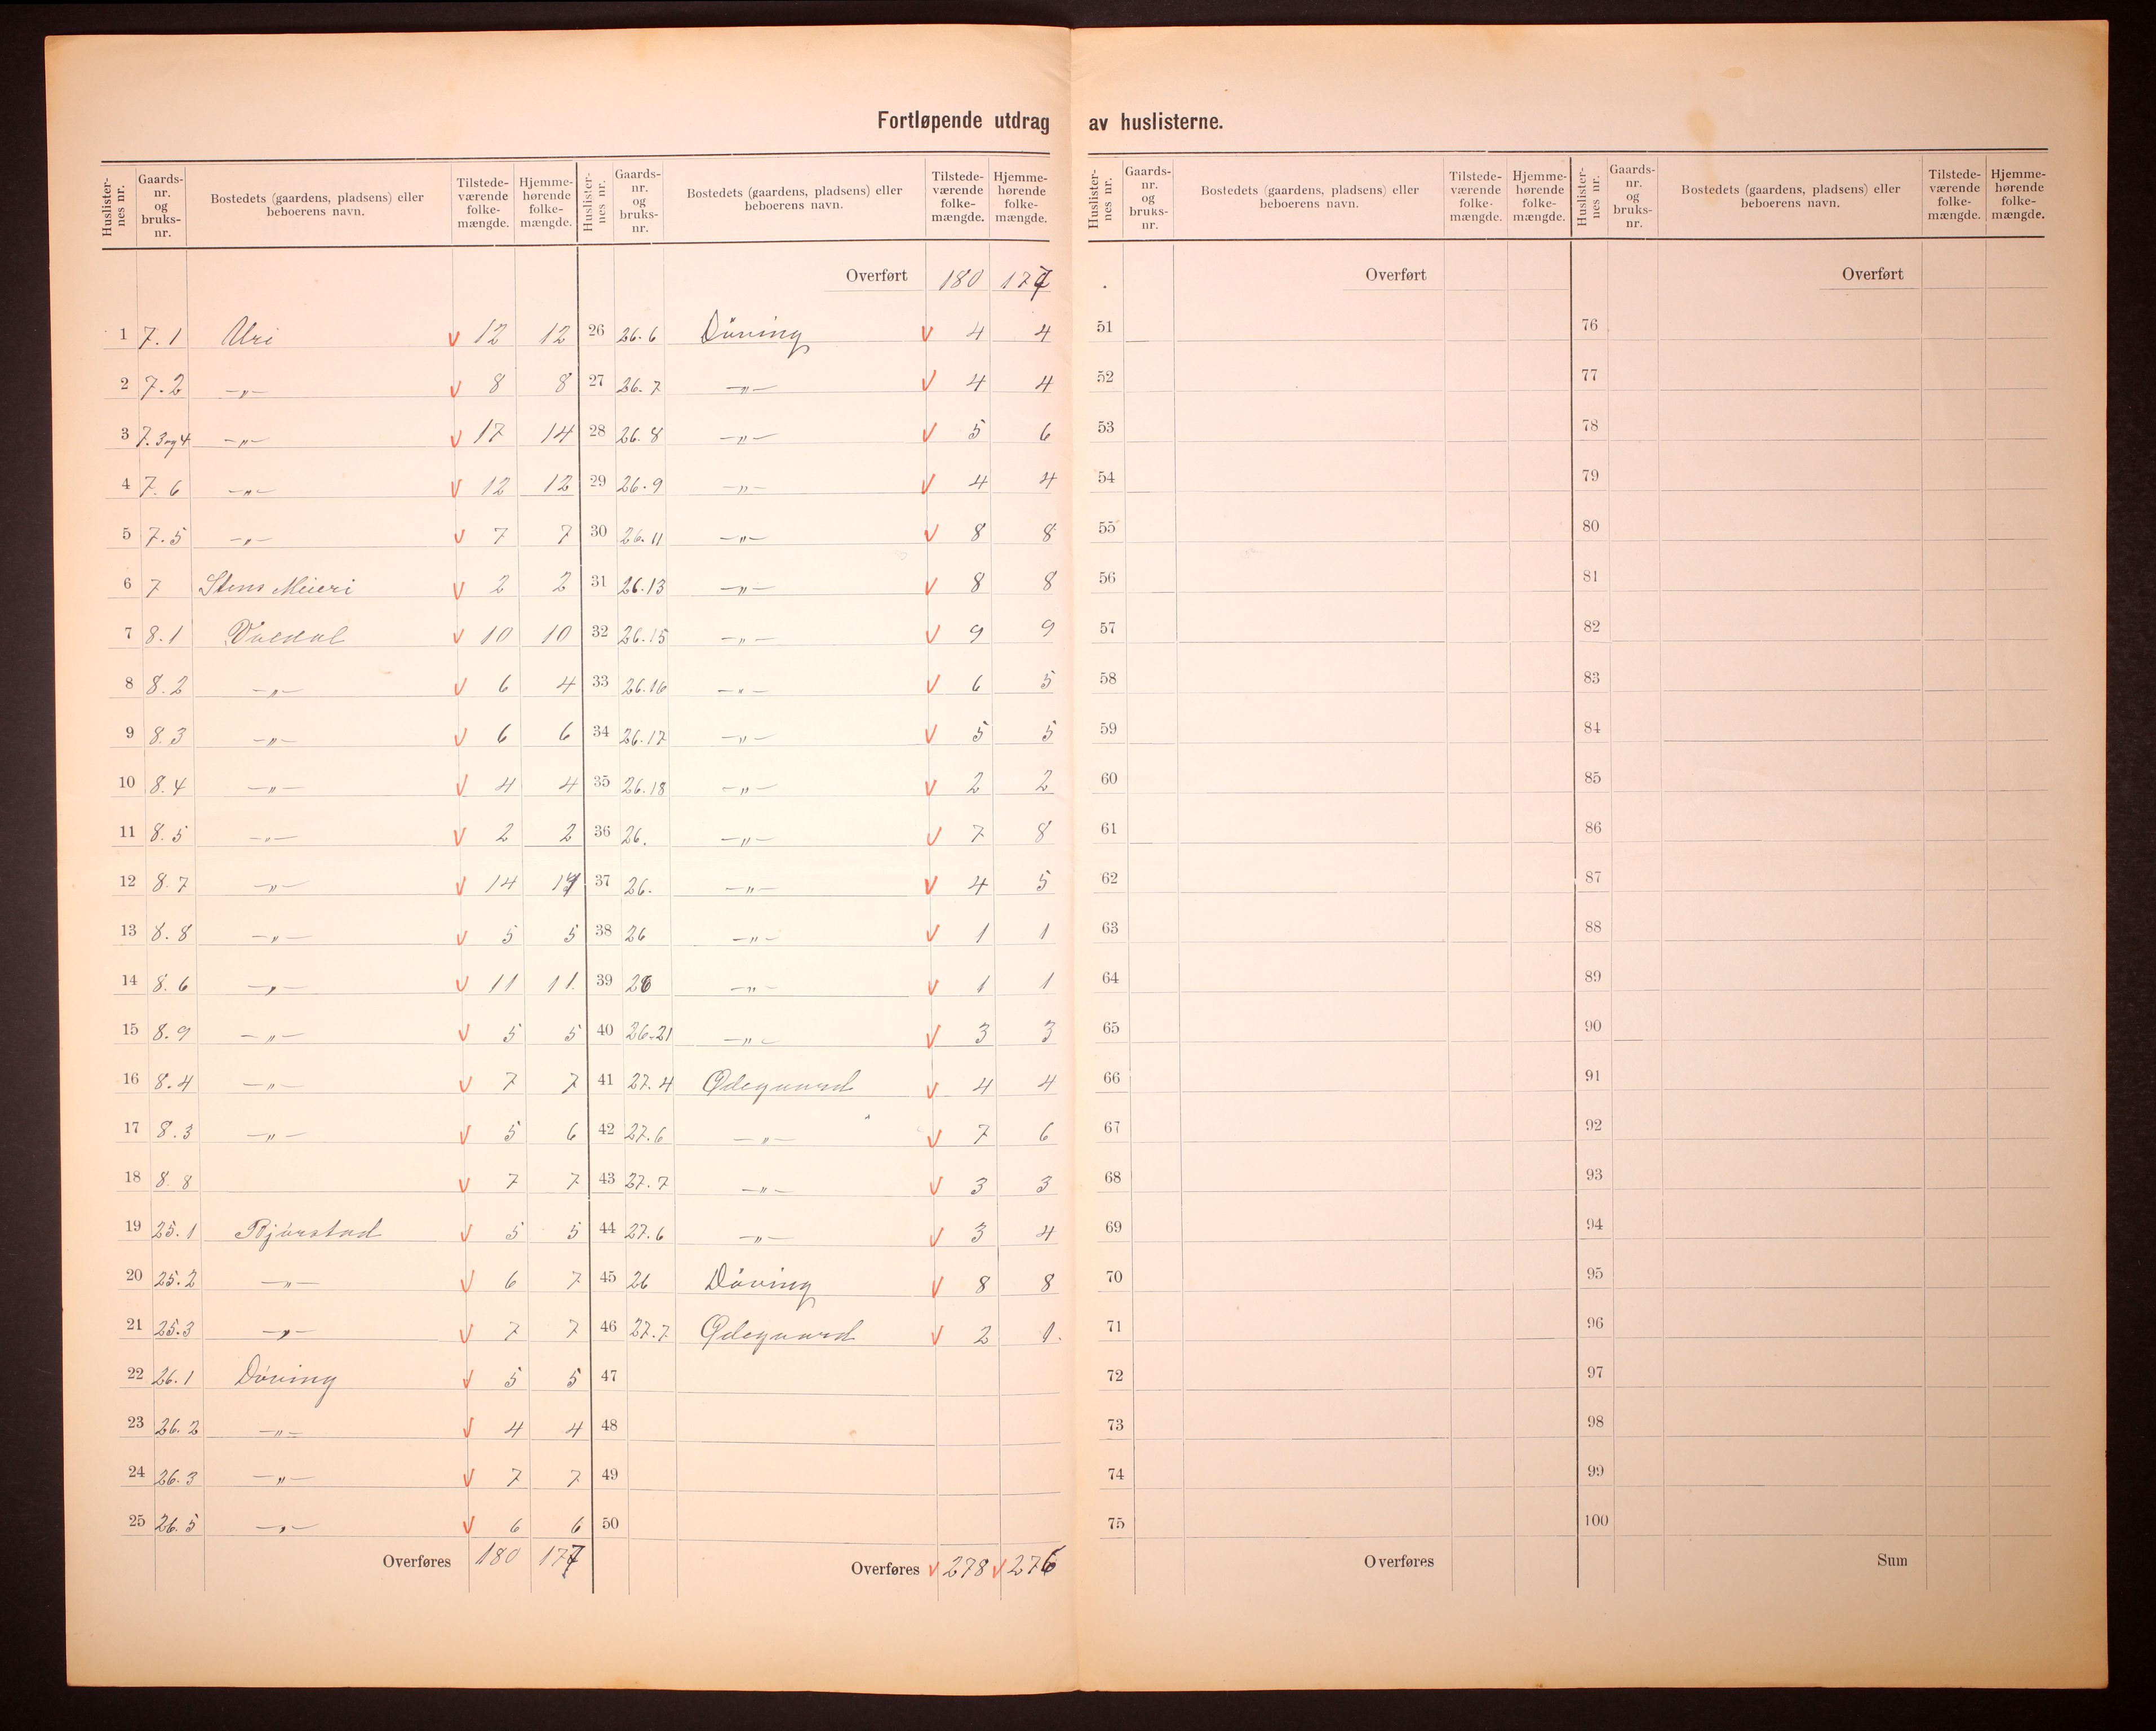 Fortløpende utdrag av huslisterne.
Huslisternes nr. Gaards-nr. og bruks-nr. Bostedets (gaardens, pladsens) eller beboerens navn. Tilstedeværende folkemængde. Hjemmehørende folkemængde.
1 7.1 Uri v 12 12
2 7.2 —„— v 8 8
3 7.3og4 —„— v 17 14
4 7.6 —„— v 12 12
5 7.5 —„— v 7 7
6 7 Stens Meieri v 2 2
7 8.1 Valdal v 10 10
8 8.2 —„— v 6 4
9 8.3 —„— v 6 6
10 8.4 —„— v 4 4
11 8.5 —„— v 2 2
12 8.7 —„— v 14
13 8.8 —„— v 5 5
14 8.6 —„— v 11 11.
15 8.9 —„— v 5 5
16 8.4 —„— v 7 7
17 8.3 —„— v 5 6
18 8.8 v 7 7
19 25.1 Bjørstad v 5 5
20 25.2 —„— v 6 7
21 25.3 —„— v 7 7
22 26.1 Døving v 5 5
23 26.2 —„— v 4 4
24 26.3 —„— v 7 7
25 26.5 —„— v 6 6
Overføres 180 177
Huslisternes nr. Gaards-nr. og bruks-nr. Bostedets (gaardens, pladsens) eller beboerens navn. Tilstedeværende folkemængde. Hjemmehørende folkemængde.
Overført 180 177
26 26.6 Døving v 4 4
27 26.7 —„— v 4 4
28 26.8 —„— v 5 6
29 26.9 —„— v 4 4
30 26.11 —„— v 8 8
31 26.13 —„— v 8 8
32 26.15 —„— v 9 9
33 26.16 —„— v 6 5
34 26.17 —„— v 5 5
35 26.18 —„— v 2 2
36 26. —„— v 7 8
37 26. —„— v 4 5
38 26 —„— v 1 1
39 26 —„— v 1 1
40 26.21 —„— v 3 3
41 27.4 Ødegaard v 4 4
42 27.6 —„— v 7 6
43 27.7 —„— v 3 3
44 27.6 —„— v 3 4
45 26 Døving v 8 8
46 27.7 Ødegaard v 2 1.
47
48
49
50
Overføres v 278 v 276
Huslisternes nr. Gaards-nr. og bruks-nr. Bostedets (gaardens, pladsens) eller beboerens navn. Tilstedeværende folkemængde. Hjemmehørende folkemængde.
Overført
51
52
53
54
55
56
57
58
59
60
61
62
63
64
65
66
67
68
69
70
71
72
73
74
75
Overføres
Huslisternes nr. Gaards-nr. og bruks-nr. Bostedets (gaardens, pladsens) eller beboerens navn. Tilstedeværende folkemængde. Hjemmehørende folkemængde.
Overført
76
77
78
79
80
81
82
83
84
85
86
87
88
89
90
91
92
93
94
95
96
97
98
99
100
Sum